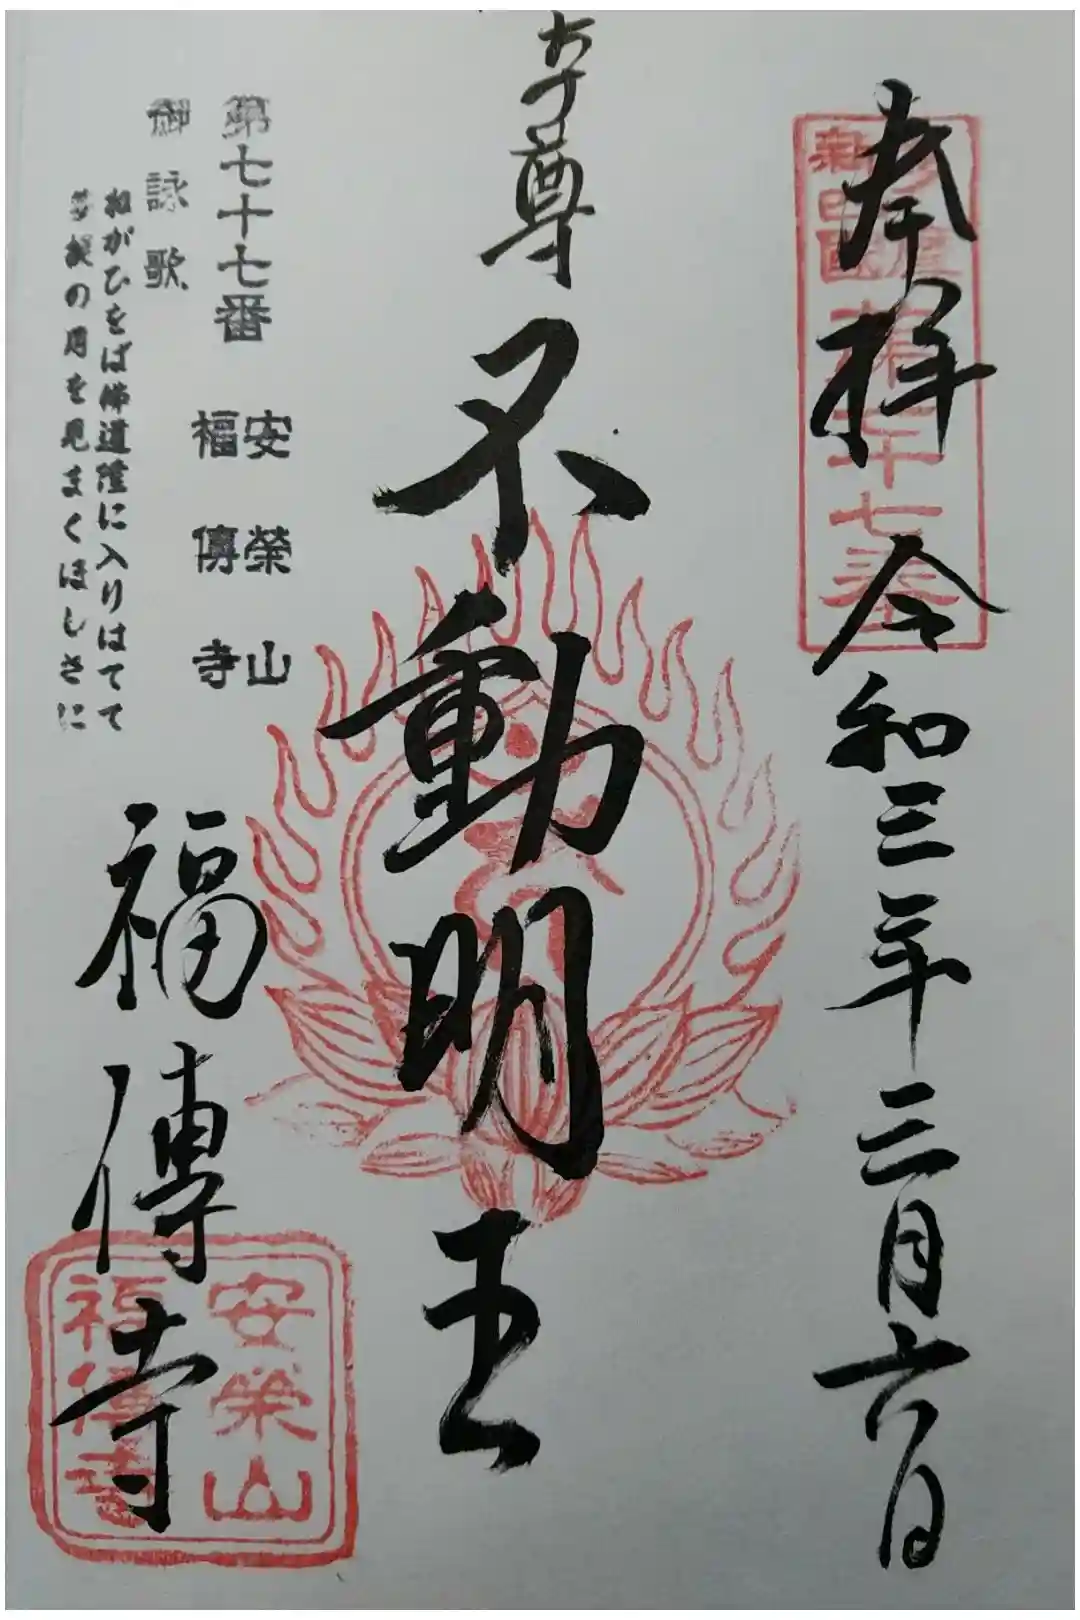 奉拝
令和三年三月六日
本尊
不動明王
第七十七番
安榮山
福傳寺
御詠歌
ねがひをば佛道隆に入りはてて
菩提の月を見まくほしさに
福傳寺
安栄山
福傳寺
第七十七番